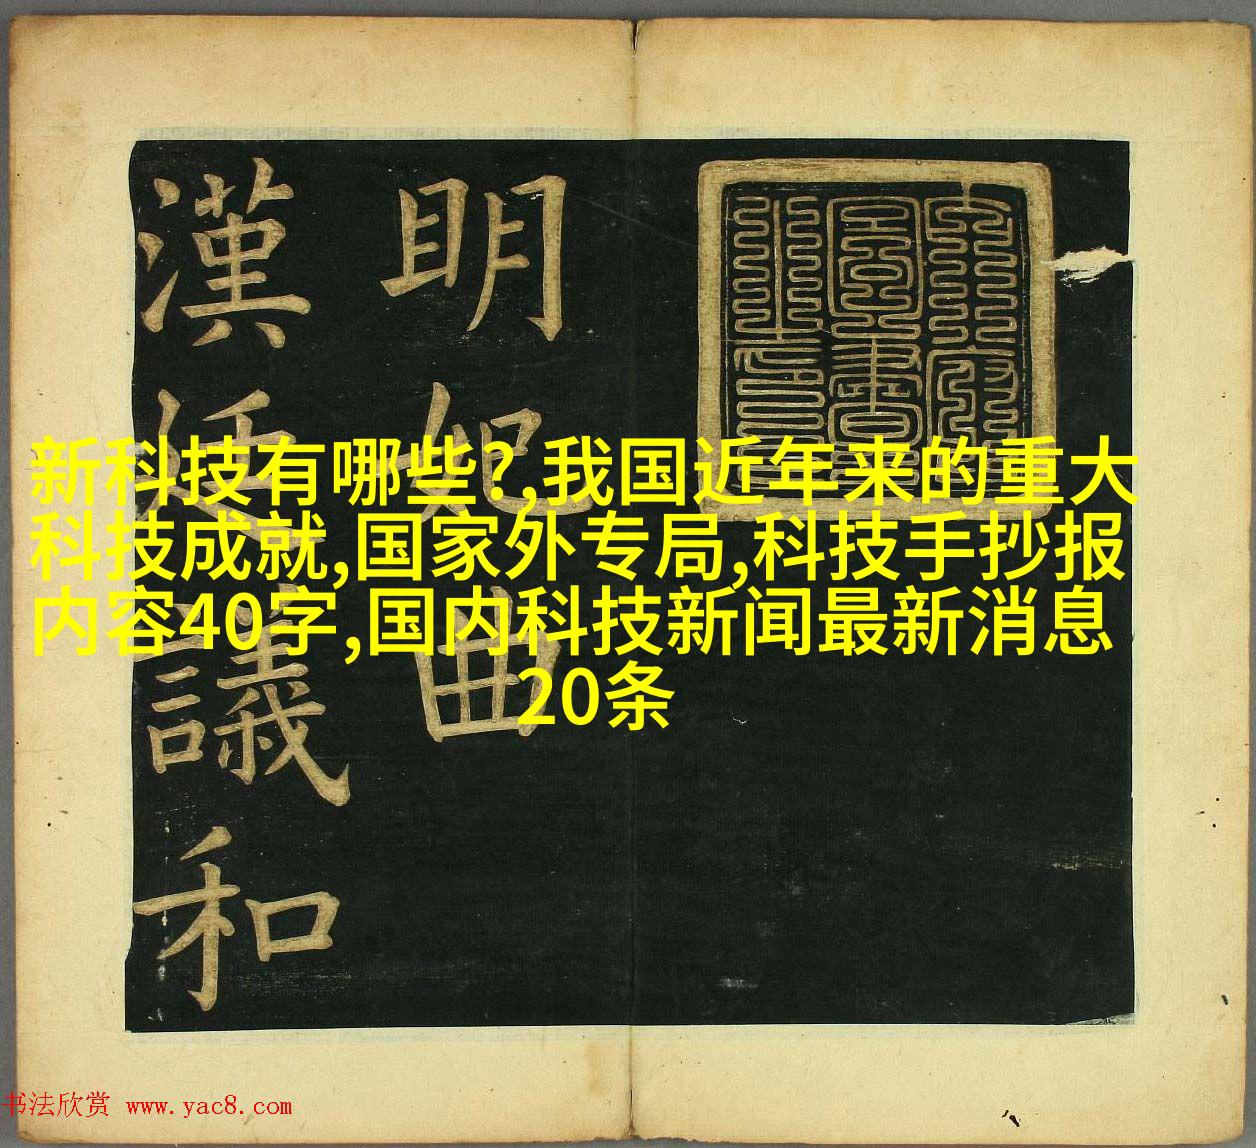 明妃曲
漢廷議和
新科技有哪些?,我国近年来的重大
科技成就,国家外专局,科技手抄报
内容40字,国内科技新闻最新消息
20条
书法欣赏 www.yac8.com